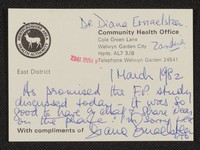 Dr Diana Ernaelsteen
Community Health Office
Cole Green Lane
Welwyn Garden City
Herts. AL7 3JB
Telephone Welwyn Garden 24541
East District
1 March 1982
As promised the F.P study
discussed today - it was so
good to have a chat & share ideas
on the phone
With compliments of Diana Ernaelsteen